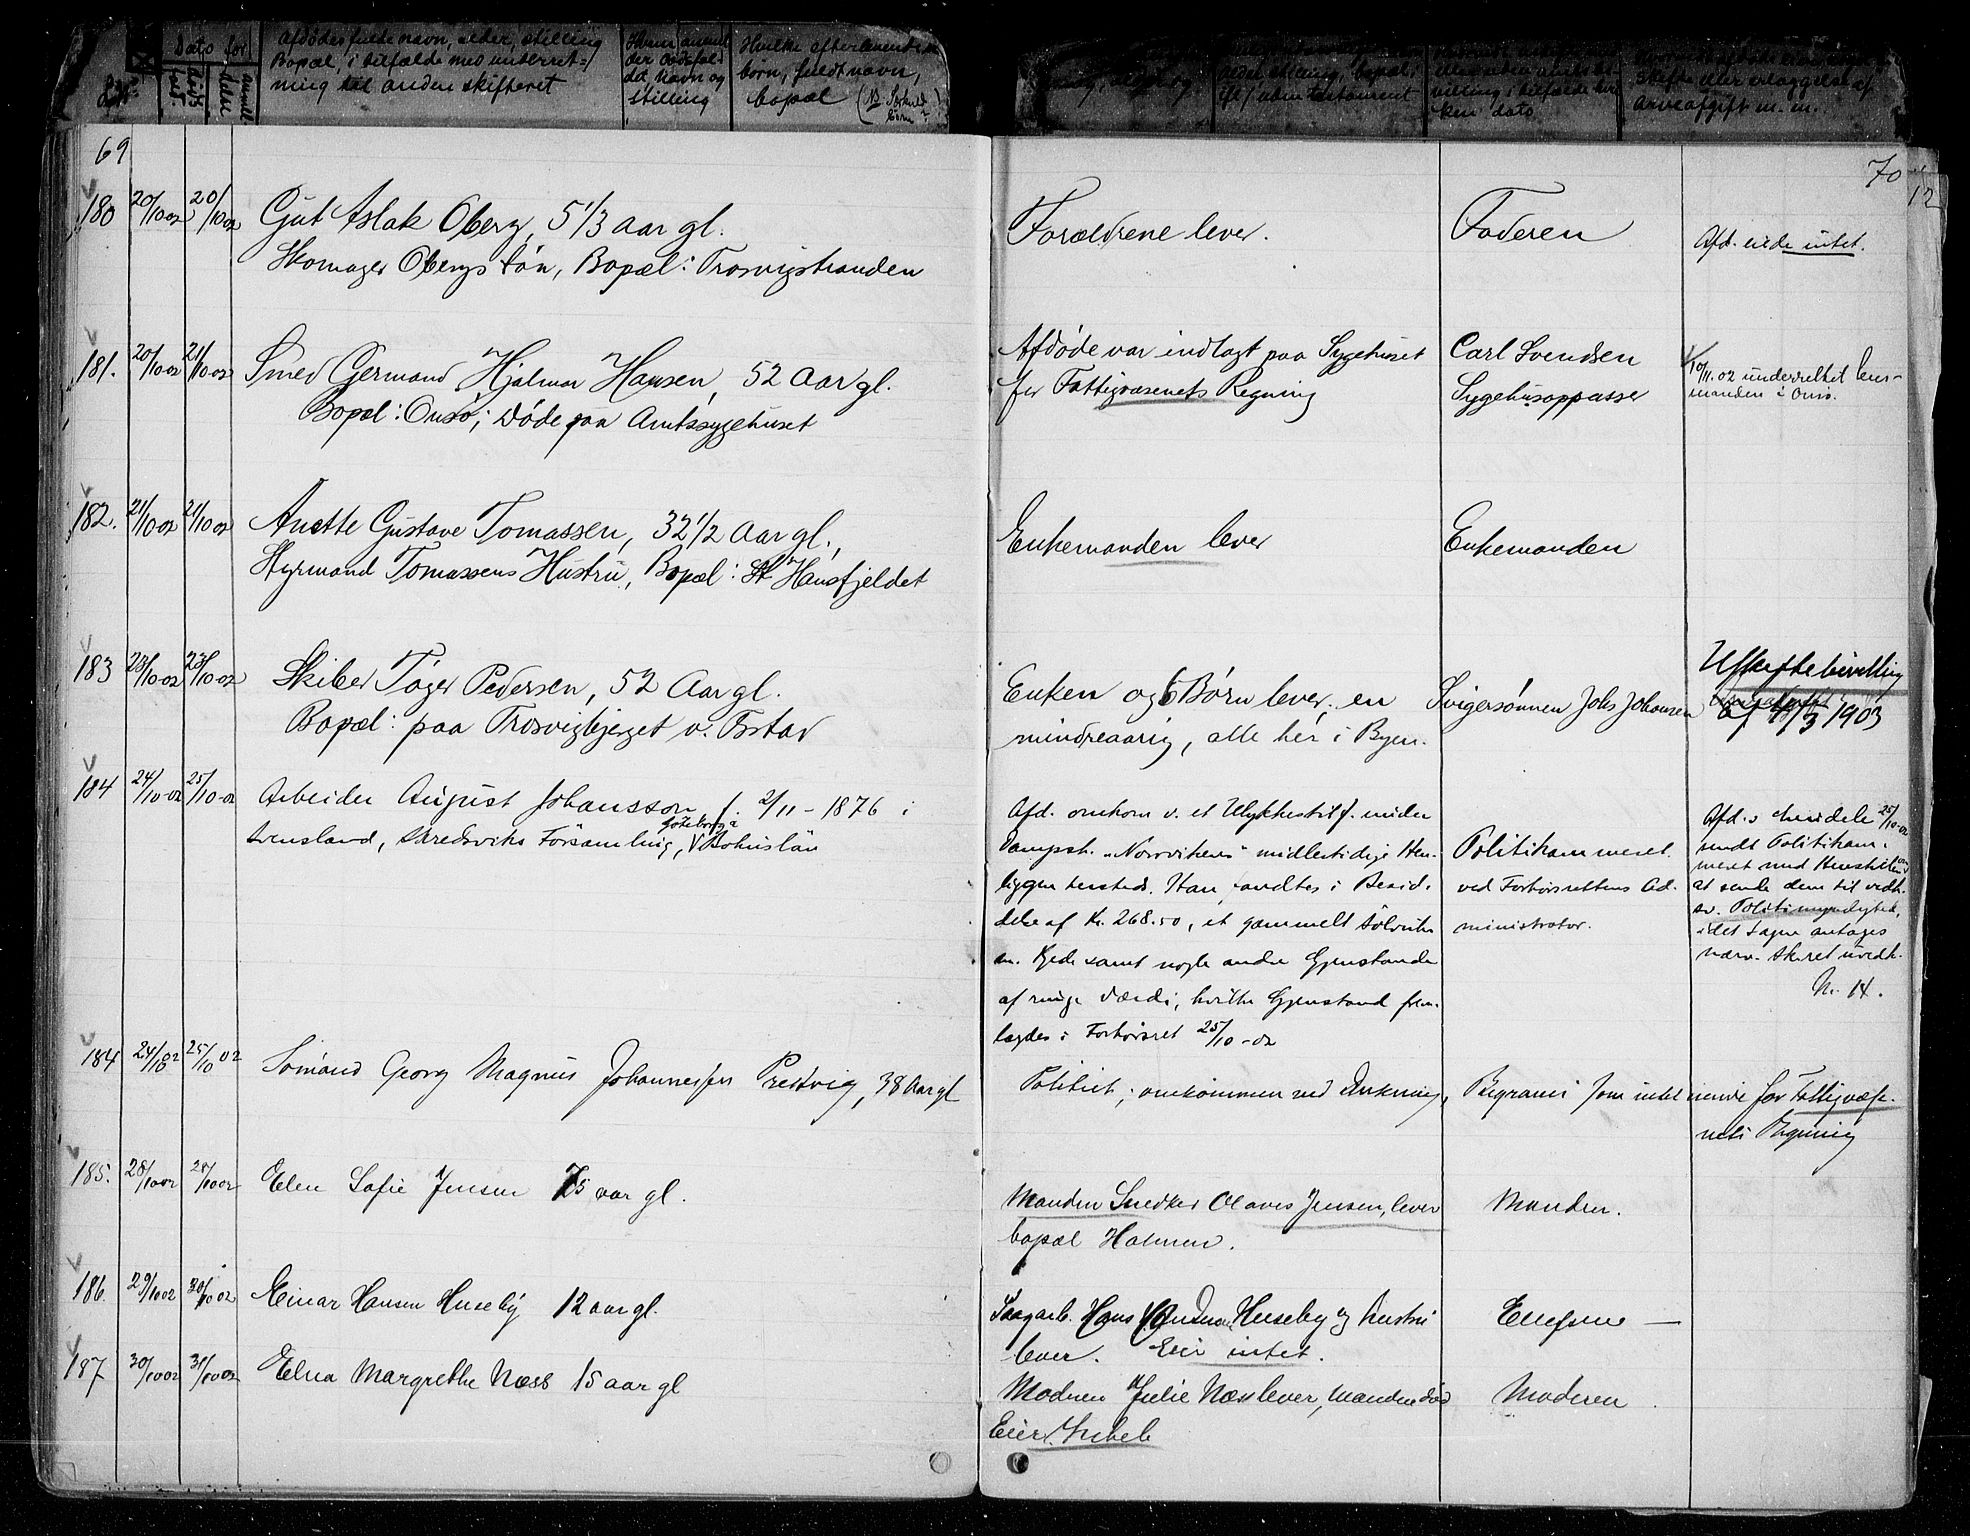 Dato for
Afdødes fulde navn, alder, stilling
Bopæl, i tilfælde med underret-
ning til anden skifteret
navn og
stilling
Hvilke efterlevende
børn, fuldt navn,
bopæl
69
70
12
180 20/10 02 20/10 02 Gut Aslak Oberg, 5 1/3 Aar gl. Forældrene lever. Faderen Afd. eiede intet.
Skomager Obergs Søn, Bopæl: Trosvigstranden
181. 20/10 02 21/10 02 Smed Germand Hjalmar Hansen, 52 Aar gl. Afdøde var indlagt paa Sygehuset Carl Svendsen 10/11.02 underrettet lens-
Bopæl: Onsø; døde paa Amtssygehuset for Fattigvæsenets Regning Sygehusoppasser manden i Onsø.
182. 21/10 02 21/10 02 Anette Gustave Tomassen, 32 1/2 Aar gl., Enkemanden lever Enkemanden
Styrmand Tomassens Hustru, Bopæl: St Hansfjeldet
183 23/10-02 23/10-02 Skiber Tøger Pedersen, 52 Aar gl. Enken og 6 Børn lever, en Svigersønnen Johs Johansen Uskiftebevilling
Bopæl: paa Trosvigbjerget v. Fstad mindreaarig, alle her i Byen. af 1903
184 24/10-02 25/10-02 Arbeider August Johansson f. 2/11-1876 i
Svensland, Skredsviks Församling, Göteborg & Bohuslän
Afd. omkom v. et Ulykkestilf. under
Dampsk. "Norrvikens" midlertidige Hen-
liggen hersteds. Han fandtes i Besid-
delse af Kr. 268.50, et gammelt Sølvuhr
m. Kjede samt nogle andre Gjenstande
af ringe Værdi, hvilke Gjenstand frem-
lagdes i Forhørsret 25/10-02
Politikammeret
ved Forhørsrettens Ad-
ministrator.
Afd.s 25/10-02
sendt Politikam-
meret med Henstillen om
at sende dem til vedk.
sv. Politimyndighed,
idet Sagen antages
nærv. Sk.ret uvedk.
N. 14.
184 24/10 02 25/10 02 Sømand Georg Magnus Johannessen Prestvig, 38 Aar gl Politiet; omkommen ved Drukning, Begraves som intet eiende for Fattigvæse-
nets Regning
185. 28/10 02 28/10 02 Elen Sofie Jensen 75 aar gl. Manden Snedker Olaves Jensen, lever Manden.
bopæl Holmen.
186. 29/10 02 30/10 02 Einar Hansen Huseby 12 aar gl. Sagarb. Hans Huseby og hustru
lever. Eier intet.
187 30/10 02 31/10 02 Elna Margrethe Næss 15 aar gl Moderen Julie Næss lever, Manden død Moderen
Eier Intet